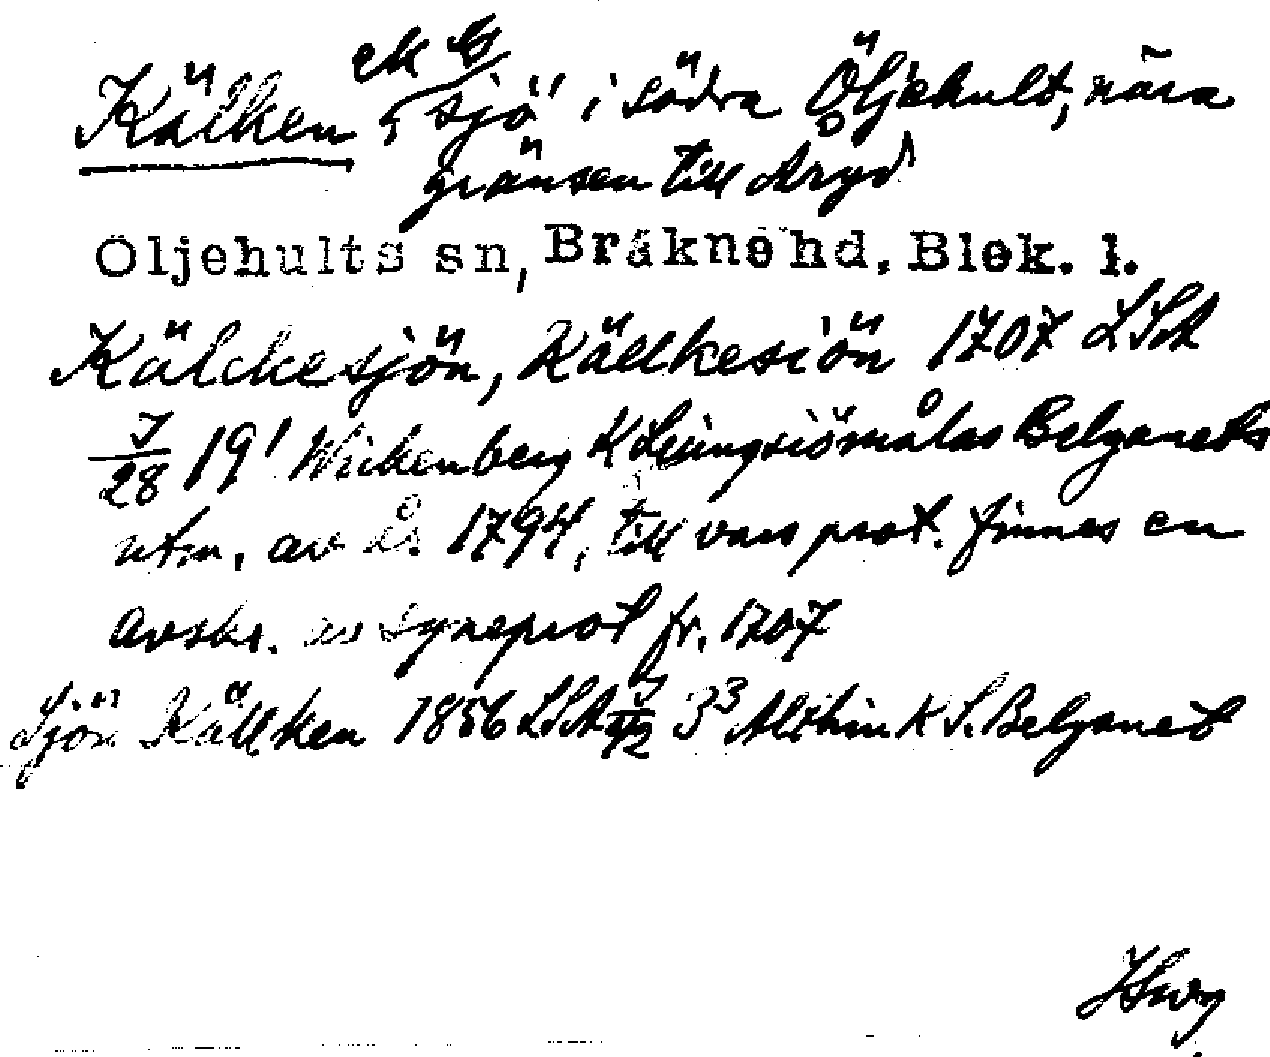 Kälken, sjö i södra Öljehult, nära
gränsen till Aryd
Öljehults sn, Bräkne hd, Blek. l.
Kälckesjön, Källkesiön 1707 LSA
J/28 19¹ Wickenberg K Ljungsiömålas Belganets
utm. av år 1794, till vars prot. finnes en
avskr. av syneprot fr. 1707
Sjön Källken 1856 LSA J/42 3³ Althin K S. Belganet